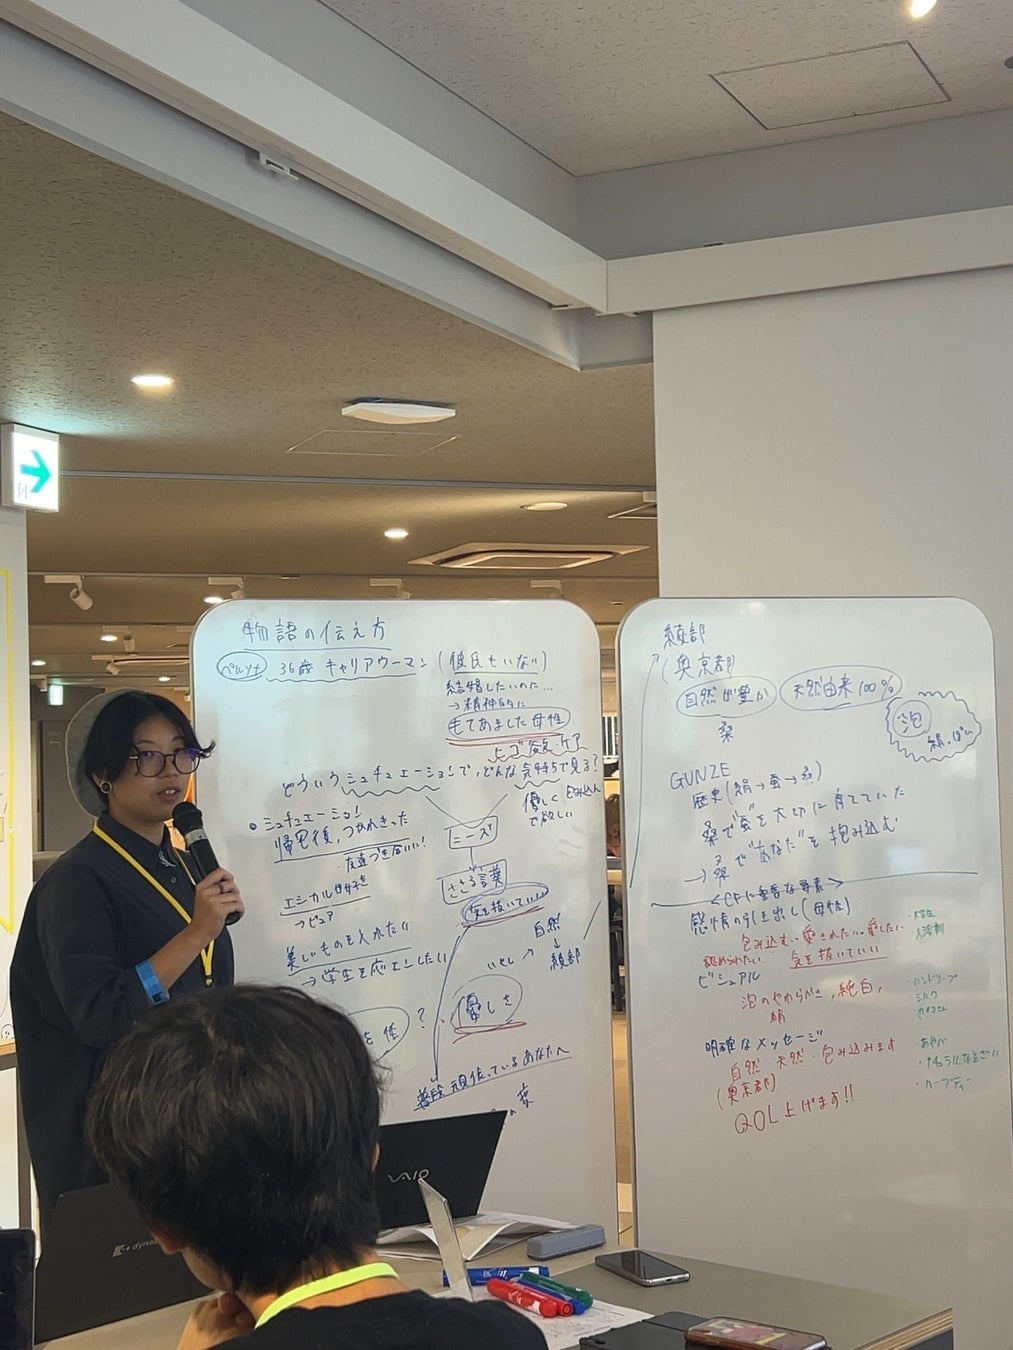 物語の伝え方
ペルソナ 36歳 キャリアウーマン (彼氏もいない)
結婚したいのに…
→精神的に
もてあました母性
ヒゴ欲・ケア
どういうシュチュエーションで、どんな気持ちで見る?
優しく包み込んで欲しい
・シュチュエーション!
帰宅後、つかれきった
・友達づき合いに!
ニーズ
エシカル好き
→ピュア
ささる言葉
気を抜いていい
美しいものを入れたい
→学生を応エンしたい
自然
↓
綾部
いやし
?
優しさ
普段 頑張っているあなたへ
綾部
(奥京都)
自然が豊か 天然由来100%
桑
泡
絹っぽい
GUNZE
歴史(絹→蚕→桑)
桑で"蚕"を大切に育てていた
→桑で"あなた"を抱み込む
<CFに重要な要素>
感情の引き出し(母性)
包み込む・愛されたい・愛したい
認められたい・気を抜いていい
ビジュアル
泡のやわらかさ,純白,
絹
明確なメッセージ
自然・天然・包み込みます
(奥京都)
QOL上げます!!
・ハンドソープ
・ミルク
・あやべ
VAIO
dyna